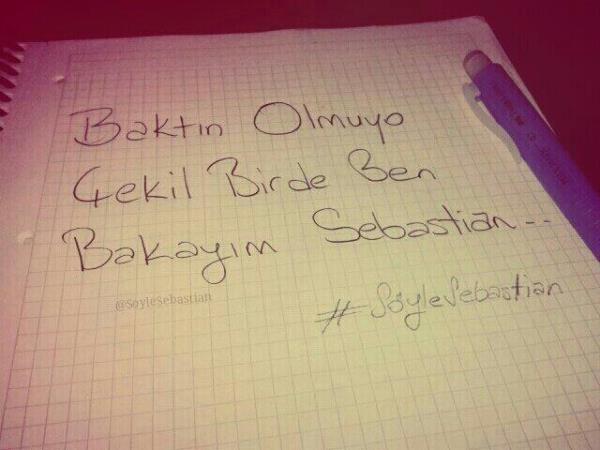 Baktın Olmuyo
Çekil Birde Ben
Bakayım Sebastian...
@SoyleSebastian
#SöyleSebastian